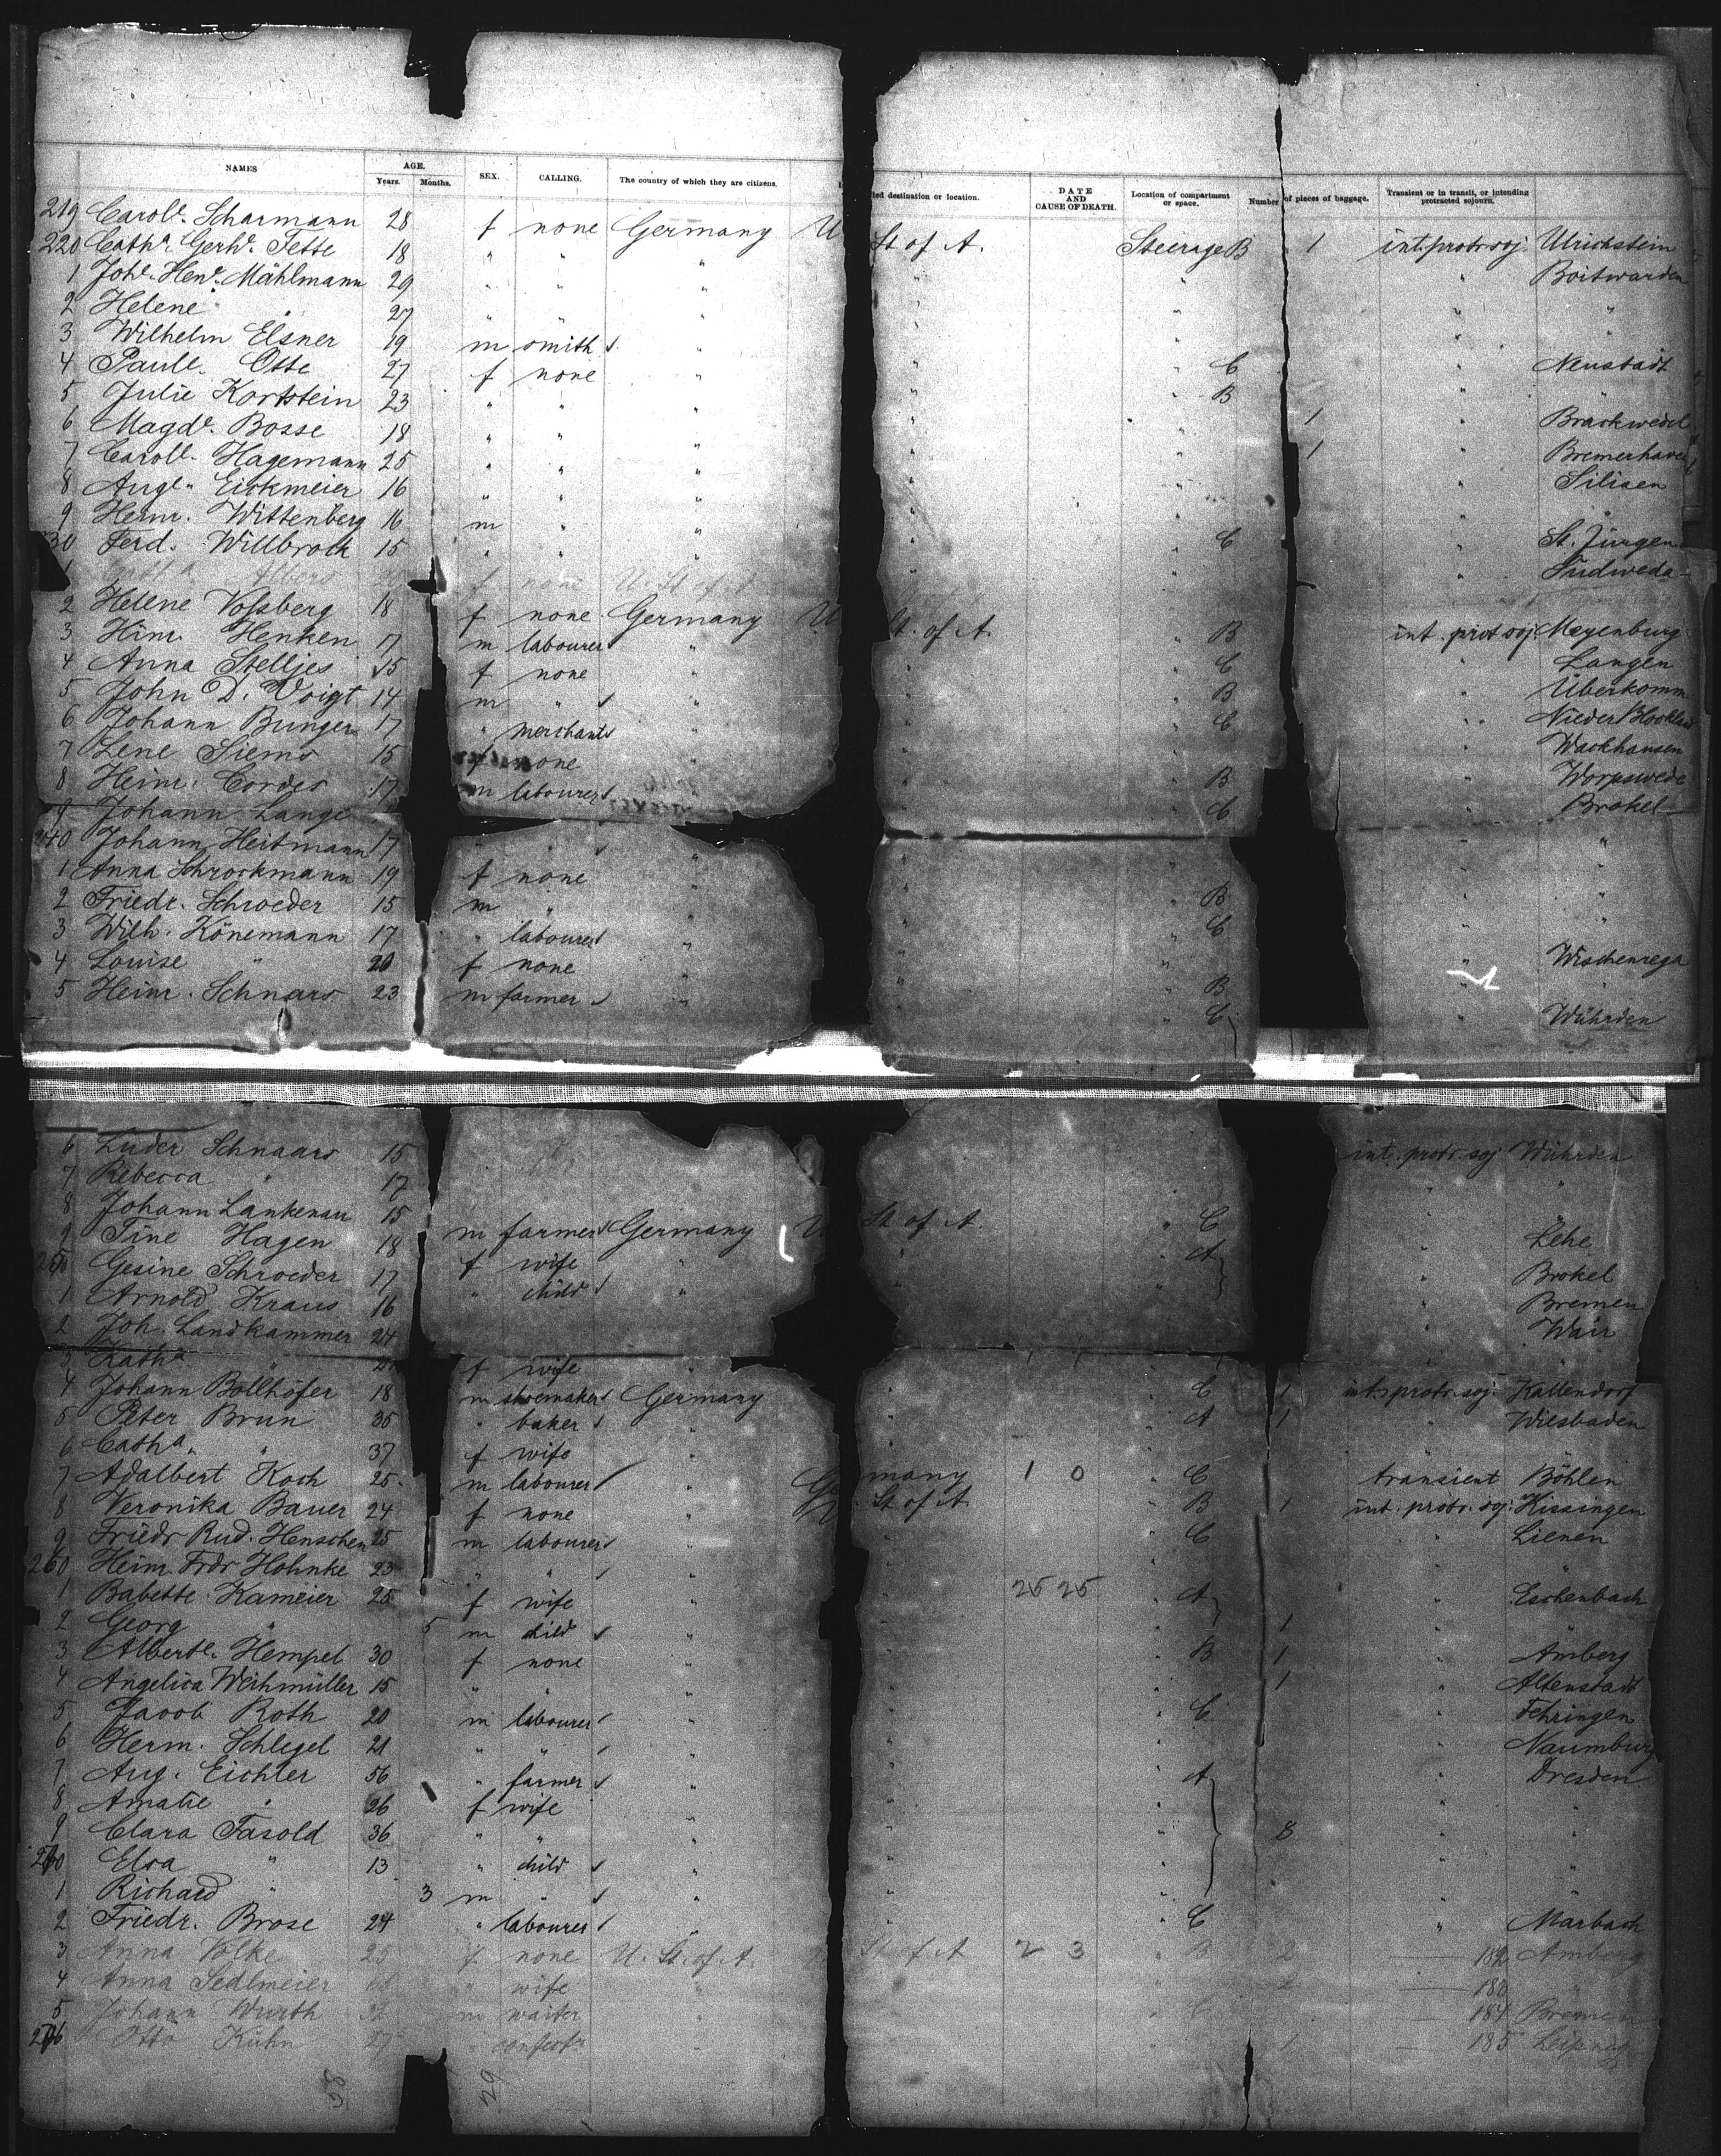 NAMES AGE. Years. Months. SEX. CALLING. The country of which they are citizens. led destination or location. DATE AND CAUSE OF DEATH. Location of compartment or space. Number of places of baggage. Transient or in transit, or intending protracted sojourn.
219 Carole. Scharmann 28 f none Germany U St of A. Steerage B 1 int. protr. soj Ulrichstein
220 Cathe. Gerhe. Tette 18 " " " " " " Boitwarden
1 Johe. Hene. Mählmann 29 " " " " " " "
2 Helene " 27 " " " " " "
3 Wilhelm Elsner 19 m smith " " C " Neustadt
4 Paule. Otte 27 f none " " B "
5 Julie Kortstein 23 " " " " " 1 " Brackwedel
6 Magde. Bosse 18 " " " " " 1 " Bremerhaven
7 Carole. Hagemann 25 " " " " " " Silisen
8 Auge. Eickmeier 16 " " " " " " "
9 Herm. Wittenberg 16 m " " " C " St. Jürgen
230 Ferd. Willbrock 15 " " " " " " Südweda-
1 Albers f none U. St. of A
2 Helene Vossberg 18 f none Germany U St. of A. " B int. prot soj Meyenburg
3 Hinr. Henken 17 m labourer " " " C " Langen
4 Anna Stelljes 15 f none " " B " Überkomm
5 John D. Voigt 14 m " " " C " Nieder Blockland
6 Johann Bunger 17 " merchant " " " Wackhausen
7 Lene Siems 15 f none " " B " Worpswede
8 Heinr. Cordes 17 m labourer " C " Brokel
9 Johann Lange
240 Johann Heitmann 17 " " " "
1 Anna Schrockmann 19 f none " " B " "
2 Friedr. Schroeder 15 m " " " C " "
3 Wilh. Könemann 17 " labourer " " " " Wischenrega
4 Louise " 20 f none " " B " "
5 Heinr. Schnars 23 m farmer " " C " Wührden
6 Lüder Schnaars 15 int. protr. soj Wührden
7 Rebecca " 17 " "
8 Johann Lankenau 15 m farmer Germany U St of A. " C " Lehe
9 Tine Hagen 18 f wife " " A " Brokel
250 Gesine Schroeder 17 " child " " " Bremen
1 Arnold Kraus 16 " Wair
2 Joh. Landkammer 24 " "
3 Katha " f wife "
4 Johann Bollhöfer 18 m shoemaker Germany " C 1 int. protr. soj. Kallendorf
5 Peter Brun 35 " baker " " A 1 " Wiesbaden
6 Catha. " 37 f wife "
7 Adalbert Koch 25 m labourer " Ge many 1 0 " C transient Böhlen
8 Veronika Bauer 24 f none " U St of A " B 1 int. protr. soj. Kissingen
9 Friedr Rud. Henschen 25 m labourer " " C " Lienen
260 Heinr. Frdr Hohnke 23 " " " " " "
1 Babette Kameier 25 f wife " " 25 25 " A " Eschenbach
2 Georg " 5 m child " " 1 "
3 Alberte. Hempel 30 f none " " B 1 " Amberg
4 Angelica Weihmüller 15 " " " " " 1 " Altenstadt
5 Jacob Roth 20 m labourer " " C " Fehringen
6 Herm. Schlegel 21 " " " " " " Naumburg
7 Aug. Eichler 56 " farmer " " A " Dresden
8 Amalie " 26 f wife " " " " "
9 Clara Fasold 36 " " " " " 8 " "
270 Elsa " 13 " child " " " " "
1 Richard " 3 m " " " " " "
2 Friedr. Brose 24 " labourer " " C " Marbach
3 Anna Volke 25 f none U. St. of A. St of A 2 3 " B 2 182 Amberg
4 Anna Sedlmeier " wife " 2 "
5 Johann Wurth 32 m waiter " 184 Bremen
276 Otto Kühn 27 " confectr " 1 185 Leipzig
29